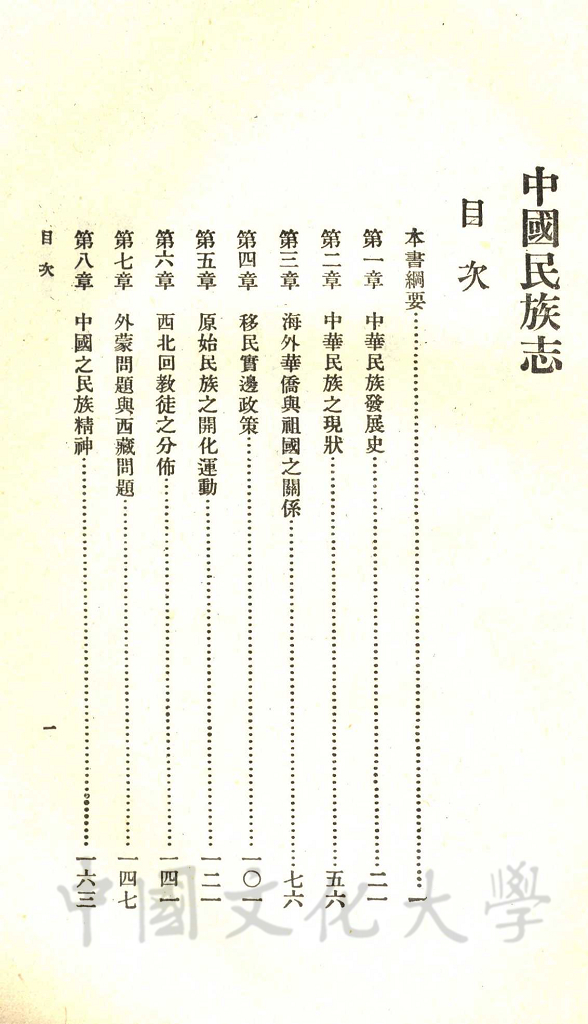 中國民族志
目次
本書綱要……一
第一章 中華民族發展史……二一
第二章 中華民族之現狀……五六
第三章 海外華僑與祖國之關係……七六
第四章 移民實邊政策……一〇一
第五章 原始民族之開化運動……一二一
第六章 西北回教徒之分佈……一四一
第七章 外蒙問題與西藏問題……一四七
第八章 中國之民族精神……一六三
目次
一
中國文化大學